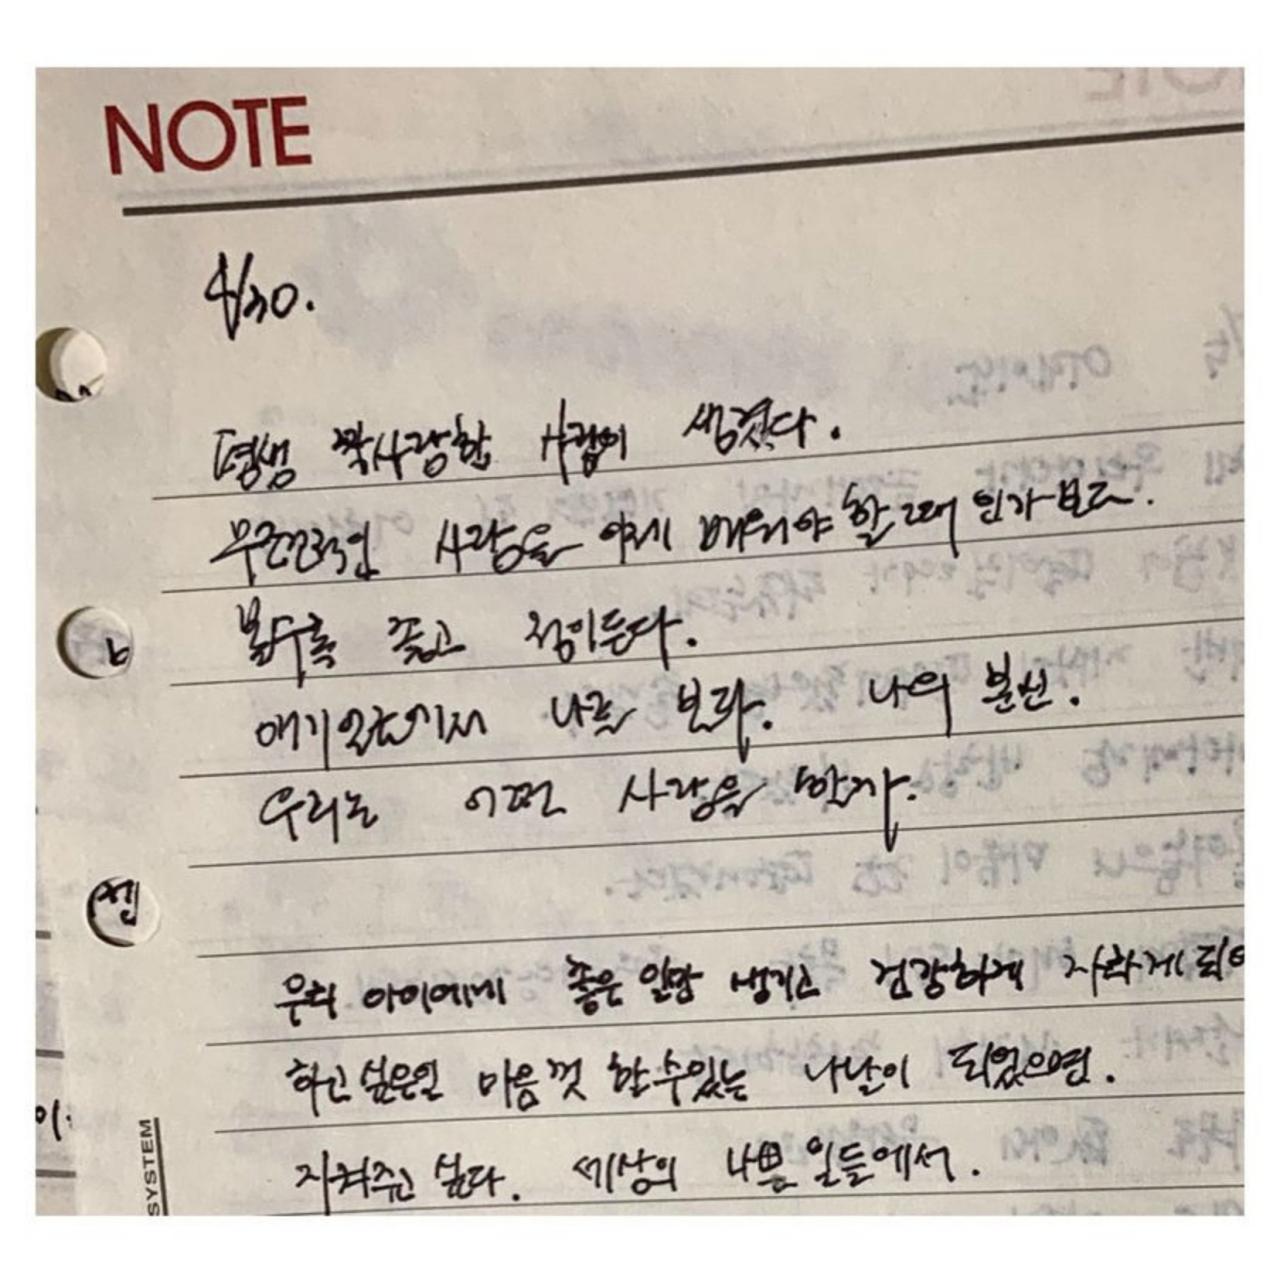 NOTE
4/30.
평생 짝사랑할 사람이 생겼다.
무조건적인 사랑을 이제 배워야 할 때 인가보다.
볼수록 좋고 정이든다.
얘기안에서 나를 보다. 나의 분신.
우리는 어떤 사랑을 할까.
우리 아이에게 좋은 일만 생기고 건강하게 자라게 되
하고 싶은일 마음껏 할 수 있는 나날이 되었으면.
지켜주고 싶다. 세상의 나쁜 일들에서.
SYSTEM